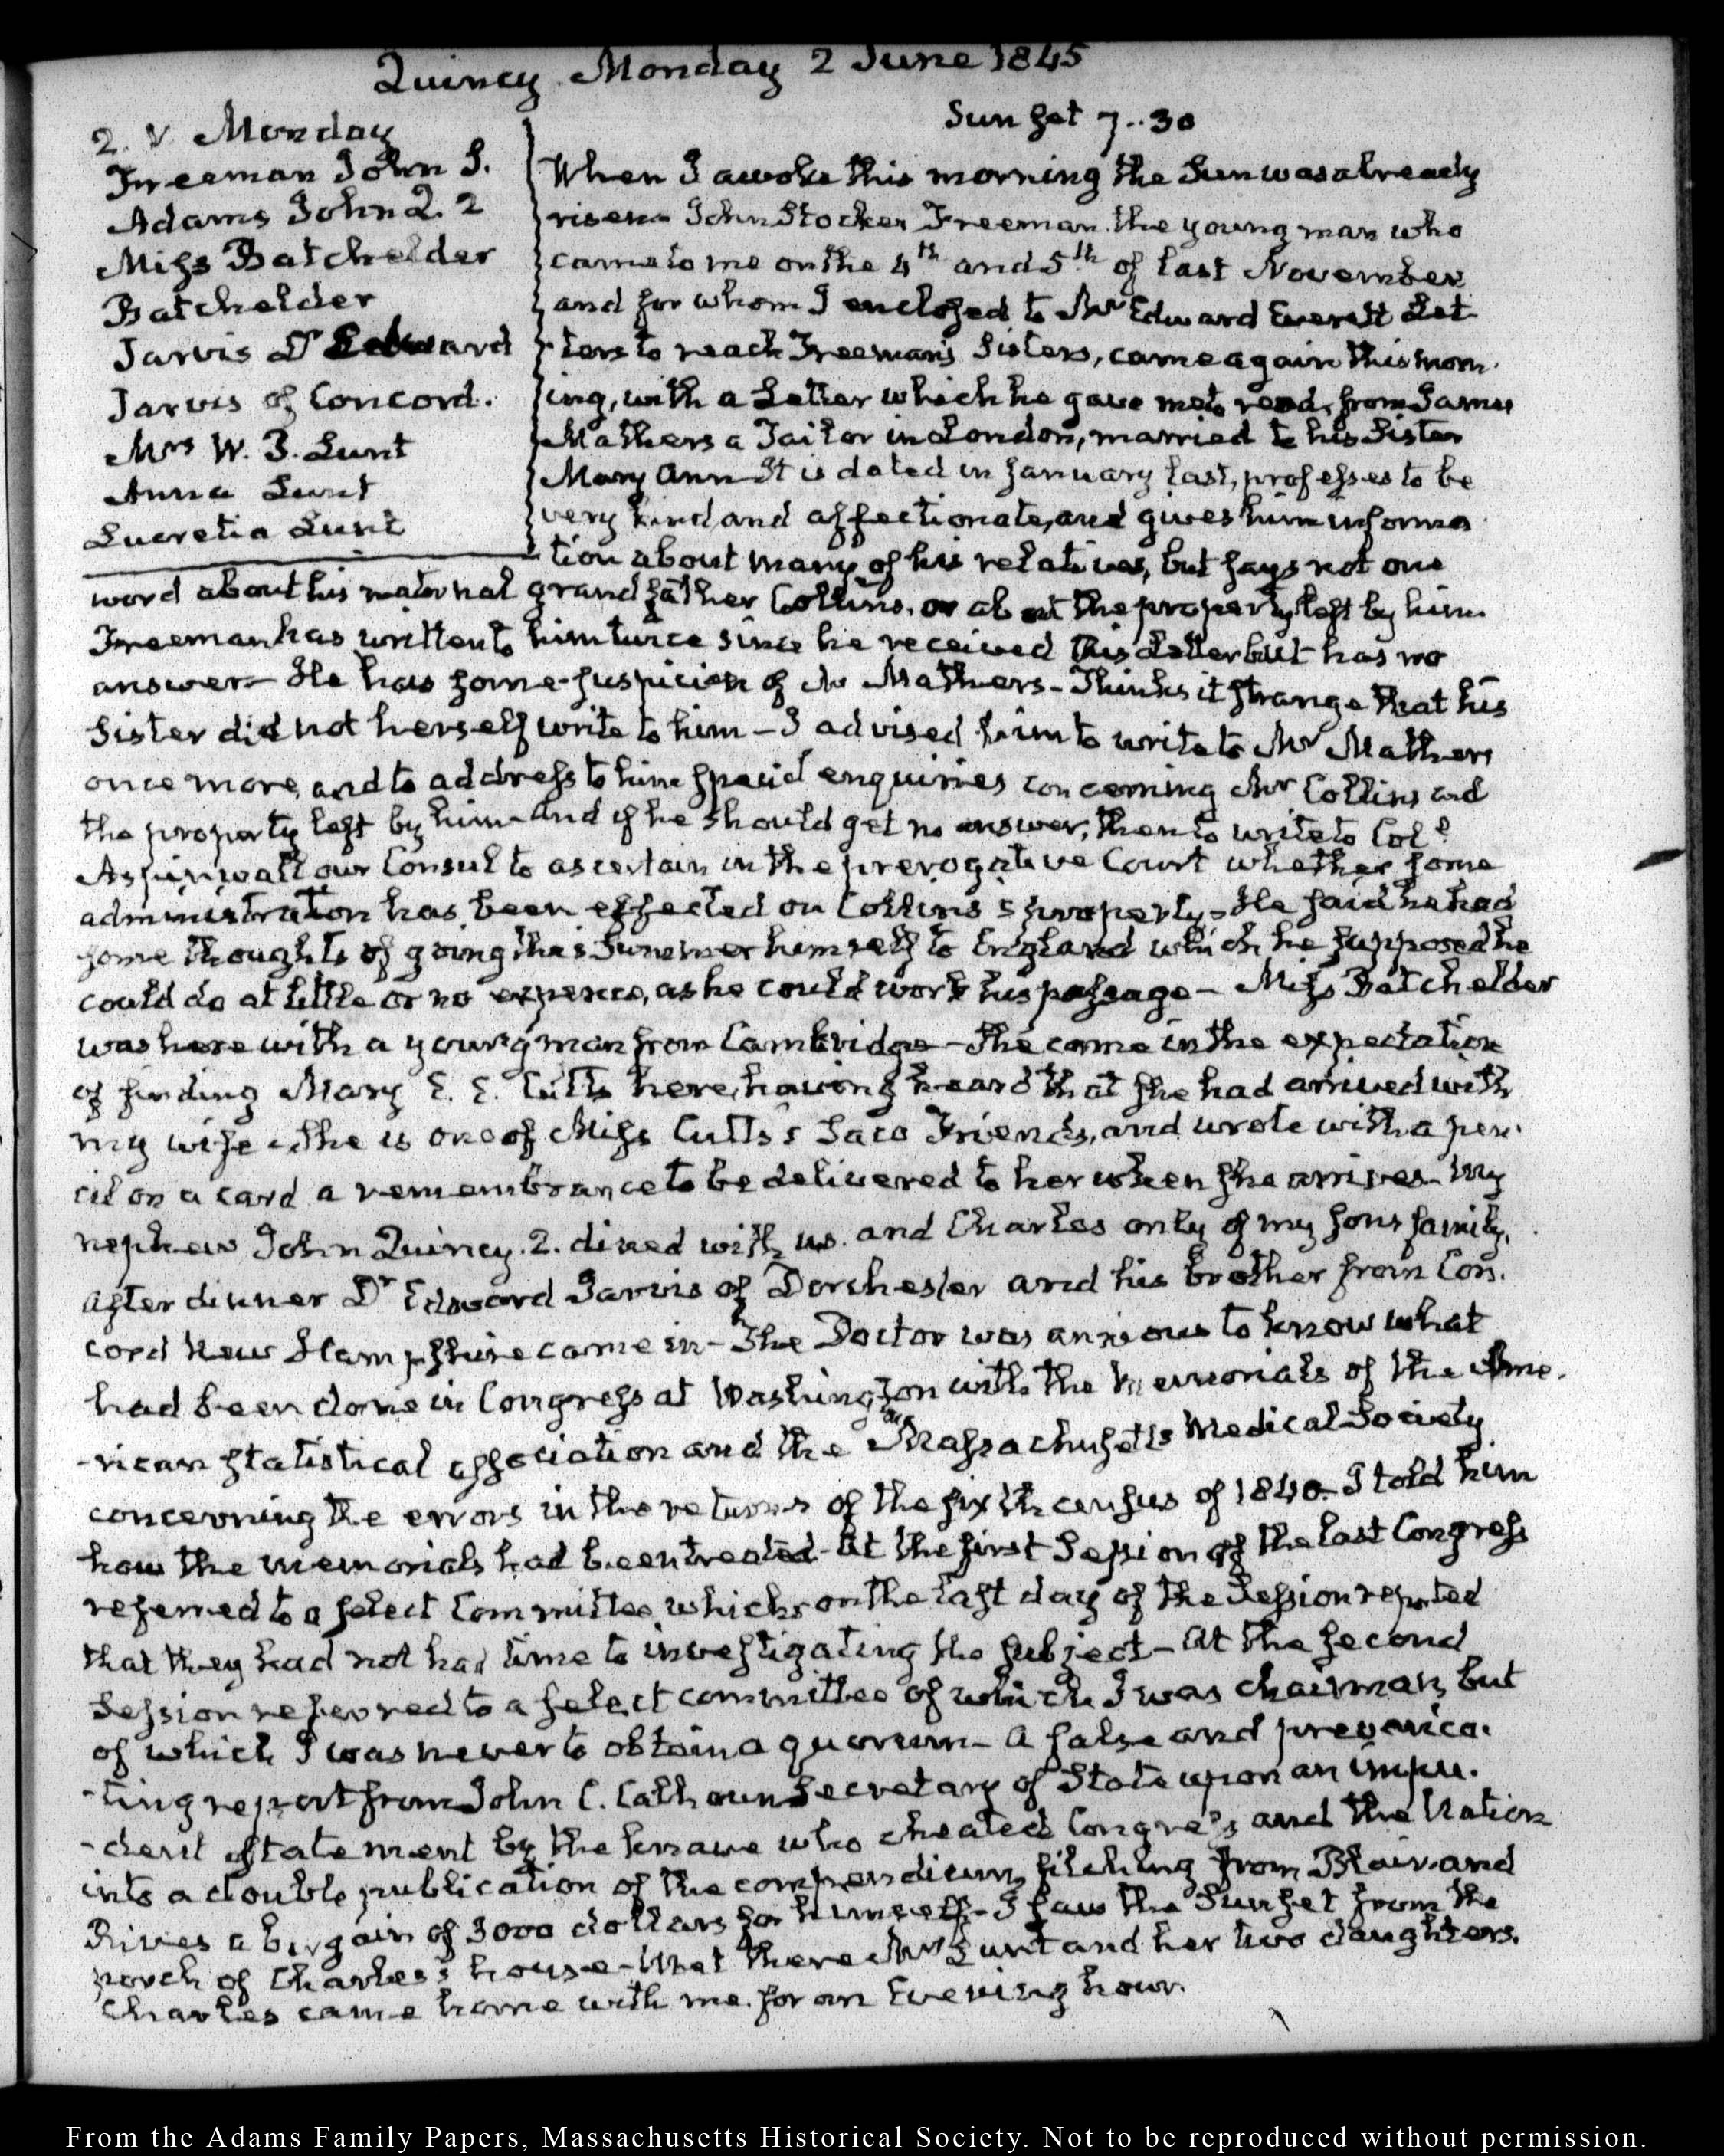 Quincy Monday 2 June 1845
2. V Monday
Freeman John S.
Adams John Q. 2
Miss Batchelder
Batchelder
Jarvis Dr Edward
Jarvis of Concord.
Mrs W. P. Lunt
Anna Lunt
Lucretia Lunt
Sun set 7..30
When I awoke this morning the Sun was already
risen. John Stocker Freeman. the young man who
came to me on the 4th and 5th of last November
and for whom I enclosed to Mr Edward Everett Let
-ters to reach Freeman's Sisters, came again this morn-
ing, with a Letter which he gave me to read, from James
Mathers a Tailor in London, married to his Sister
Mary Ann It is dated in January last, professes to be
very kind and affectionate, and gives him informa
tion about many of his relatives, but says not one
word about his maternal grandfather Collins, or about the property left by him
Freeman has written to him twice since he received this Letter but has no
answer— He has some suspicion of Mr Mathers— Thinks it strange that his
Sister did not herself write to him— I advised him to write to Mr Mathers
once more, and to address to him special enquiries concerning Mr Collins and
the property left by him— And if he should get no answer, then to write to Col.l
Aspinwall our Consul to ascertain in the prerogative Court whether some
administration has been effected on Collins's property— He said he had
some thoughts of going this Summer himself to England which he supposed he
could do at little or no expence, as he could work his passage— Miss Batchelder
was here with a young man from Cambridge— She came in the expectation
of finding Mary E. E. Cutts here, having heard that she had arrived with
my wife— She is one of Miss Cutts's Saco Friends, and wrote with a pen-
cil on a card a remembrance to be delivered to her when she arrives— My
nephew John Quincy. 2. dined with us. and Charles only of my Sons family.
after dinner Dr Edward Jarvis of Dorchester and his brother from Con-
cord New Hampshire came in— The Doctor was anxious to know what
had been done in Congress at Washington with the Memorials of the Ame-
-rican statistical association and the Massachusetts Medical Society
concerning the errors in the returns of the sixth census of 1840— I told him
how the memorials had been treated— At the first Session of the last Congress
referred to a select Committee which on the last day of the Session reported
that they had not had time to investigating the subject— At the second
Session referred to a select committee of which I was chairman, but
of which I was never to obtain a quorum— A false and prevarica-
-ting report from John C. Calhoun Secretary of State upon an impu-
-dent statement by the knave who cheated Congress and the Nation
into a double publication of the compendium, filching from Blair and
Rives a bargain of 3000 dollars for himself— I saw the Sun set from the
porch of Charles's house— Met there Mrs Lunt and her two daughters.
Charles came home with me for an Evening hour.
From the Adams Family Papers, Massachusetts Historical Society. Not to be reproduced without permission.